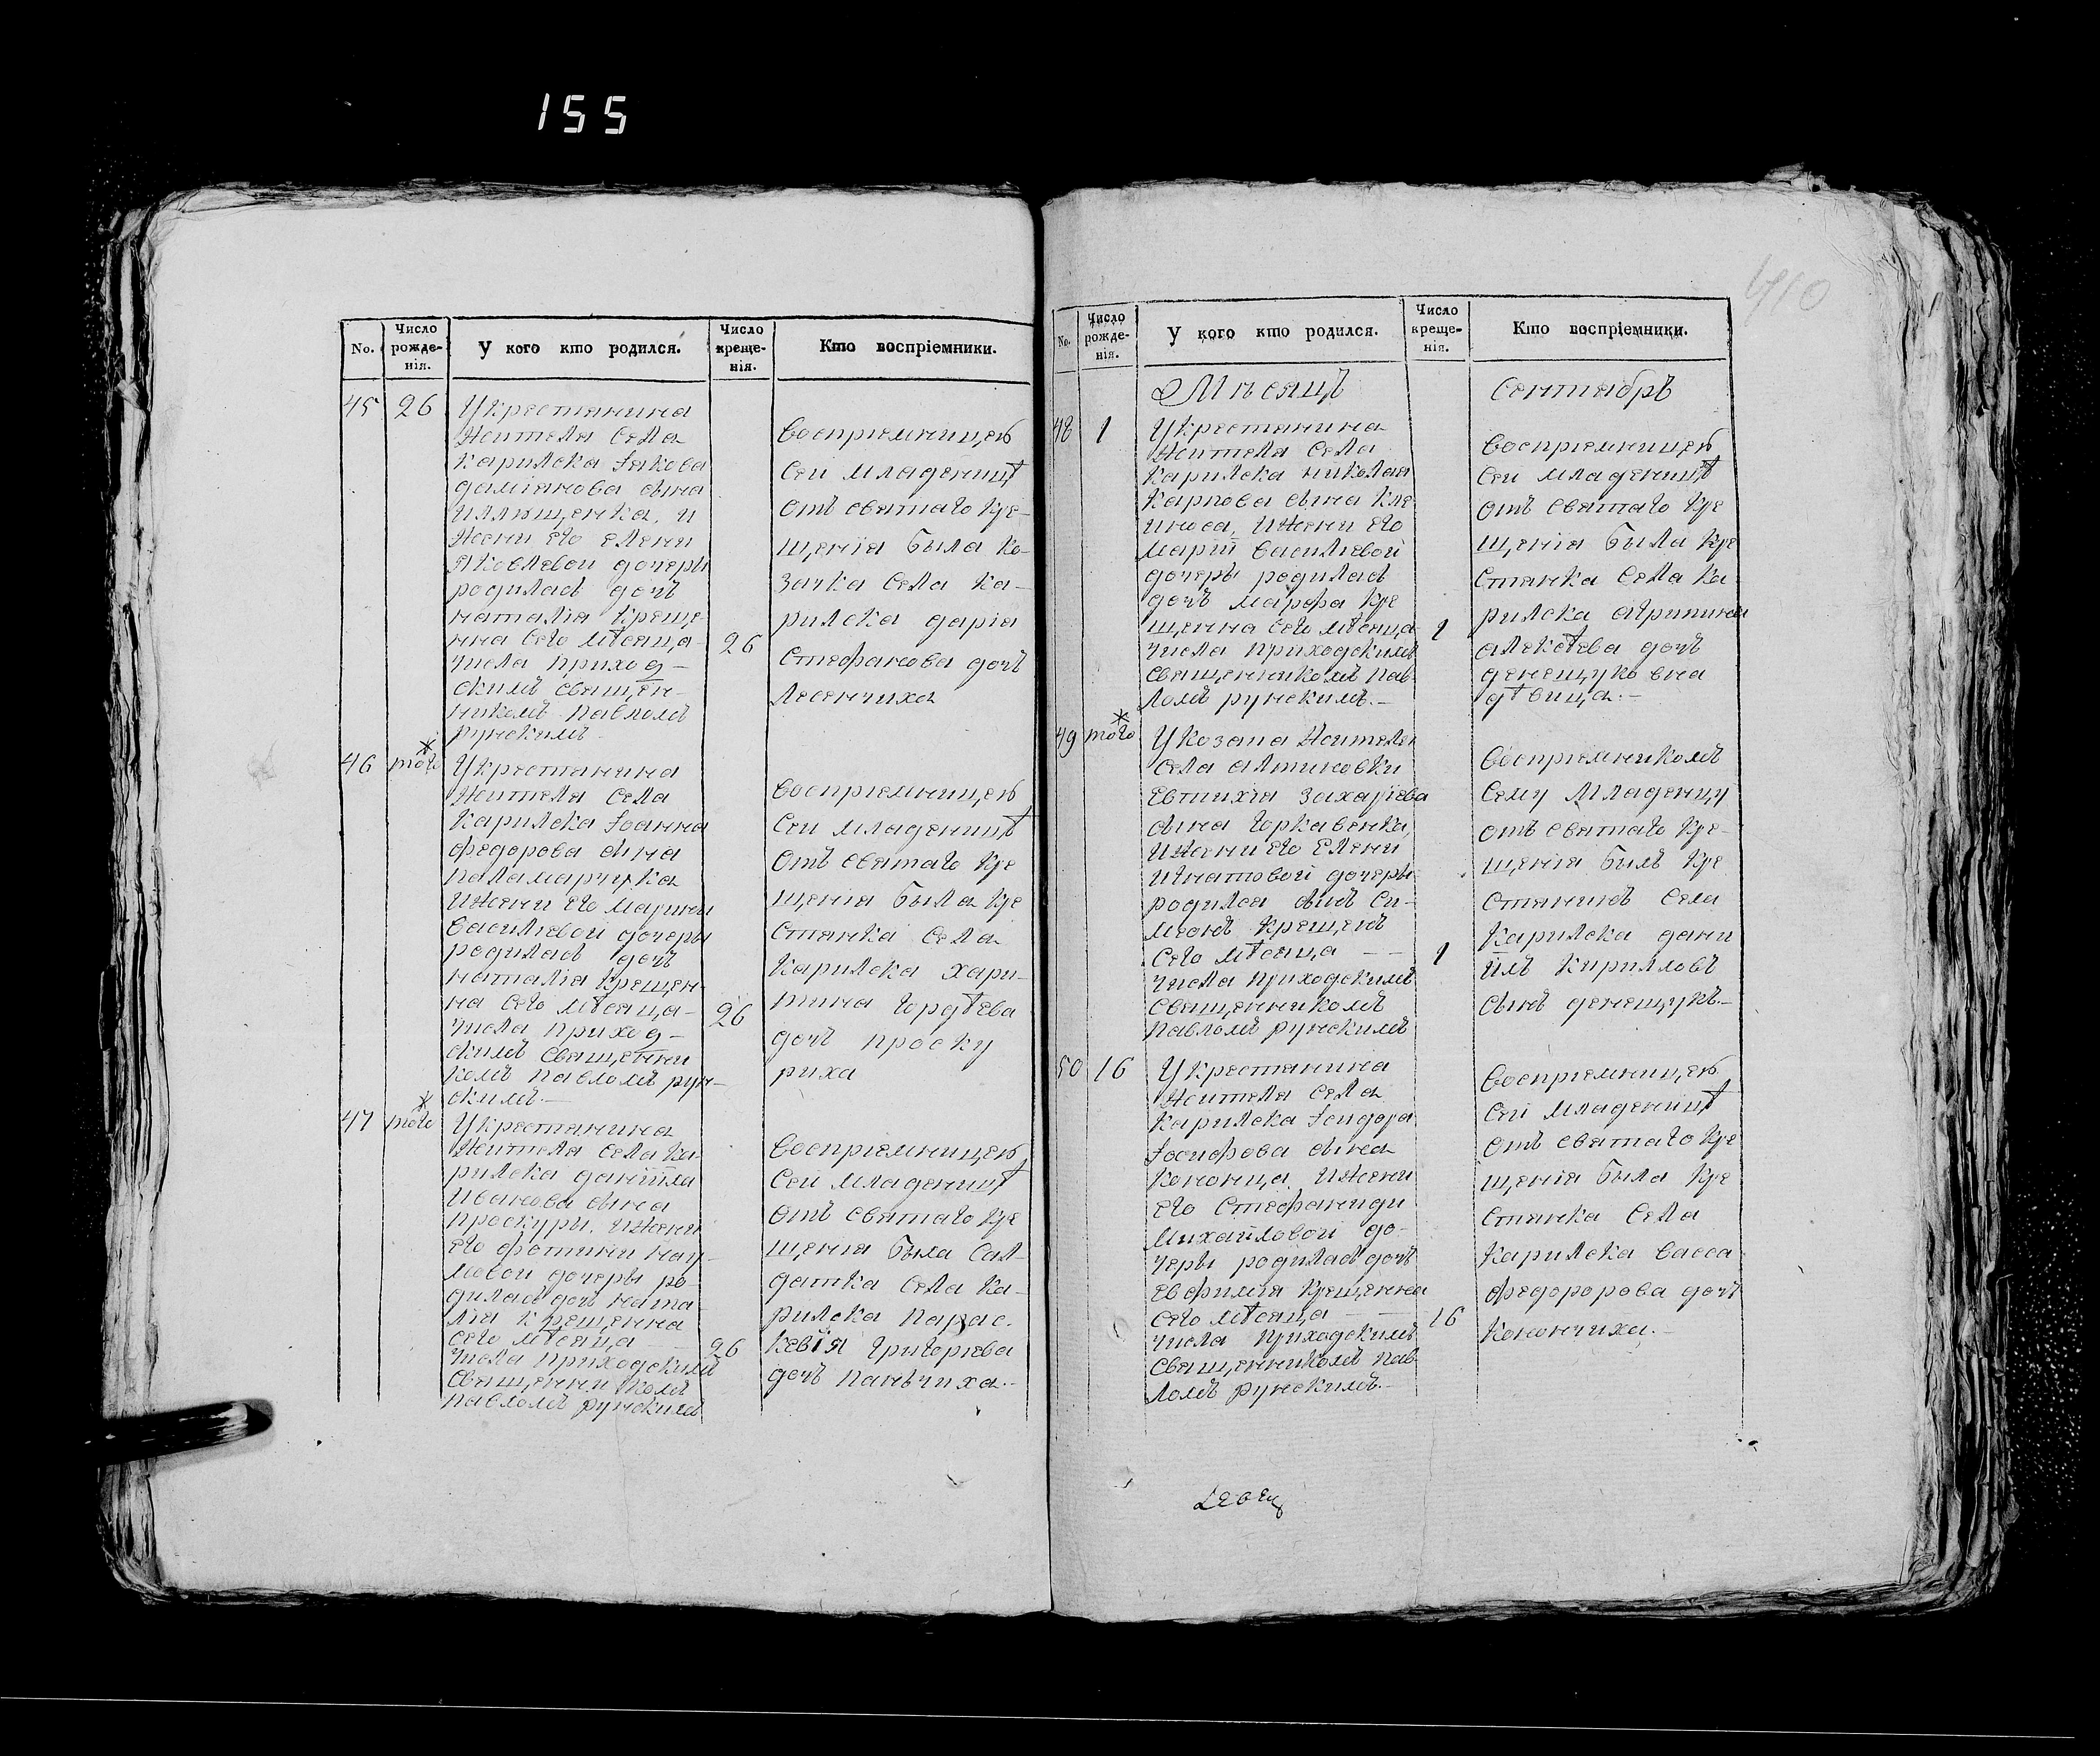 155
410
No.
Число рожде- нія.
У кого кто родился.
Число креще- нія.
Кто воспріемники.
45 26 У крестянина
жителя села
карилска Іякова
даміянова сына
иллющенка, и
жени его елени
яковлевой дочеры
родилась дочъ
наталія креще-
нна сего мѣсяца- 26
числа приход-
скимъ священ-
никомъ павломъ
рунскимъ -
воспріемницею
сей младеницѣ
отъ святаго кре-
щенія была ко-
зачка села ка-
рилска дарія
стефанова дочъ
лесенчиха
46 того У крестянина
жителя села
карилска Іоанна
федорова сына
паламарчука
и жени его марини
василіевой дочеры
родилась дочъ
наталія крещен-
на сего мѣсяца- 26
числа приход-
скимъ священни
комъ павломъ рун-
скимъ. -
воспріемницею
сей младеницѣ
отъ святаго кре
щенія была кре
стянка села
карилска хари-
тина гордѣева
дочъ проску
риха
47 того У крестянина
жителя села ка-
рилска даніила
иванова сына
проскуры, и жени
его фотини нау-
мовой дочеры ро
дилась дочъ ната-
лія крещенна
сего мѣсяца - 26
числа приходскимъ
священникомъ
павломъ рунскимъ
воспріемницею
сей младеницѣ
отъ святаго кре
щенія была сал-
датка села ка-
рилска парас.
кевія григоріева
дочъ панъчиха.-
No.
Число рожде- нія.
У кого кто родился.
Число креще- нія.
Кто воспріемники.
Мѣсяцъ Сентябръ
48 1 У крестянина
жителя села
карилска николая
карпова сына кле
инова, и жени его
маріи василіевой
дочеры родилась
дочъ марфа кре
щенна сего мѣсяца 1
числа приходскимъ
священникомъ пав-
ломъ рунскимъ.-
воспріемницею
сей младеницѣ
отъ святаго кре
щенія была кре
стянка села ка-
рилска агрипина
алексѣева дочъ
денещуковна
дѣвица. -
49 того У козака жителя
села алтиновки
евтихія захаріева
сына горкавенка,
и жени его елени
игнатовой дочеры
родился сынъ си-
меонъ крещенъ
сего мѣсяца - - 1
числа приходскимъ
священникомъ
павломъ рунскимъ
воспріемникомъ
сему младенцу
отъ святаго кре-
щенія билъ кре
стянинъ села
карилска дани
илъ кирилловъ
сынъ денещукъ.-
50 16 У крестянина
жителя села
карилска Ісидора
Іосифова сына
кононца, и жени
его стефаниди
михайловой до-
черы родилась дочъ
евфимія крещенна
сего мѣсяца - - 16
числа приходскимъ
священникомъ пав-
ломъ рунскимъ.-
воспріемницею
сей младеницѣ
отъ святаго кре
щенія была кре
стянка села
карилска васса
федоророва дочъ
кононъчиха. -